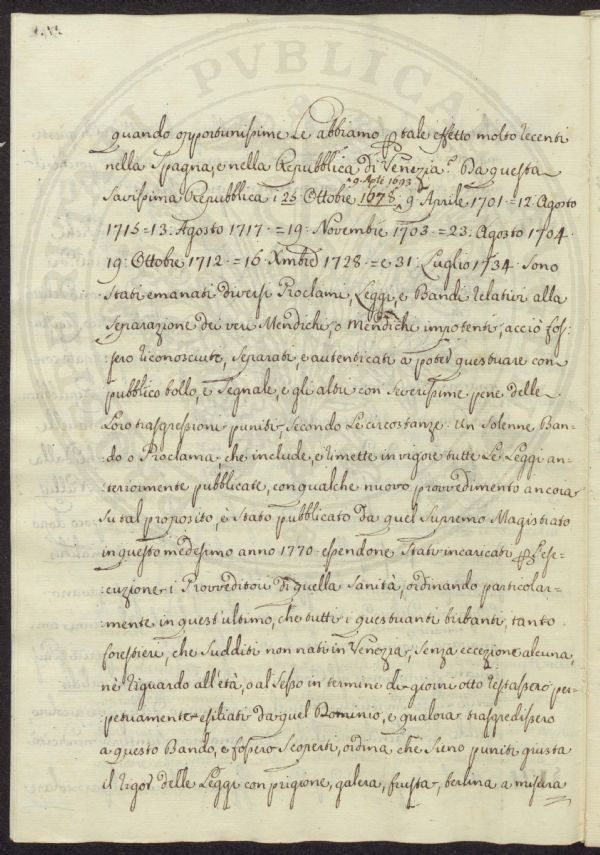 PUBLICA
quando opportunissime Le abbiamo p tale effetto molto recenti
nella Spagna, e nella Repubblica di Venezia. Da questa
9. Aple 1693
Savissima Repubblica i 25 Ottobre 1678, 9 Aprile 1701 = 12: Agosto
1715 = 13: Agosto 1717 = 19: Novembre 1703 = 23: Agosto 1704
19: Ottobre 1712 = 16: Xmbre 1728 = e 31: Luglio 1734 Sono
Stati emanati diversi Proclami, Leggi, e Bandi relativi alla
Separazione dei veri Mendichi, o Mendichi impotenti, acciò fos:
:sero riconosciuti, separati, e autenticati a poter questuare con
pubblico bollo, e Segnale, e gli altri con Severissime pene delle
Loro trasgressioni puniti, secondo Le circostanze: Un Solenne Ban:
do o Proclama, che include, e rimette in vigore tutte Le Leggi an:
teriormente pubblicate, con qualche nuovo provvedimento ancora
Su tal proposito, è Stato pubblicato da quel Supremo Magistrato
in questo medesimo anno 1770 essendone Stati incaricati p l'ese:
:cuzione i Provveditori di quella Sanità, ordinando particolar:
:mente in quest'ultimo, che tutti i questuanti birbanti, tanto
forestieri, che Sudditi non nati in Venezia, Senza eccezione alcuna,
nè riguardo all'età, o al Sesso in termine di giorni otto restassero per:
petuamente esiliati da quel Dominio, e qualora trasgredissero
a questo Bando, e fossero Scoperti, ordina che Sieno puniti giusta
il rigor delle Leggi con prigione, galera, frusta, berlina a misura